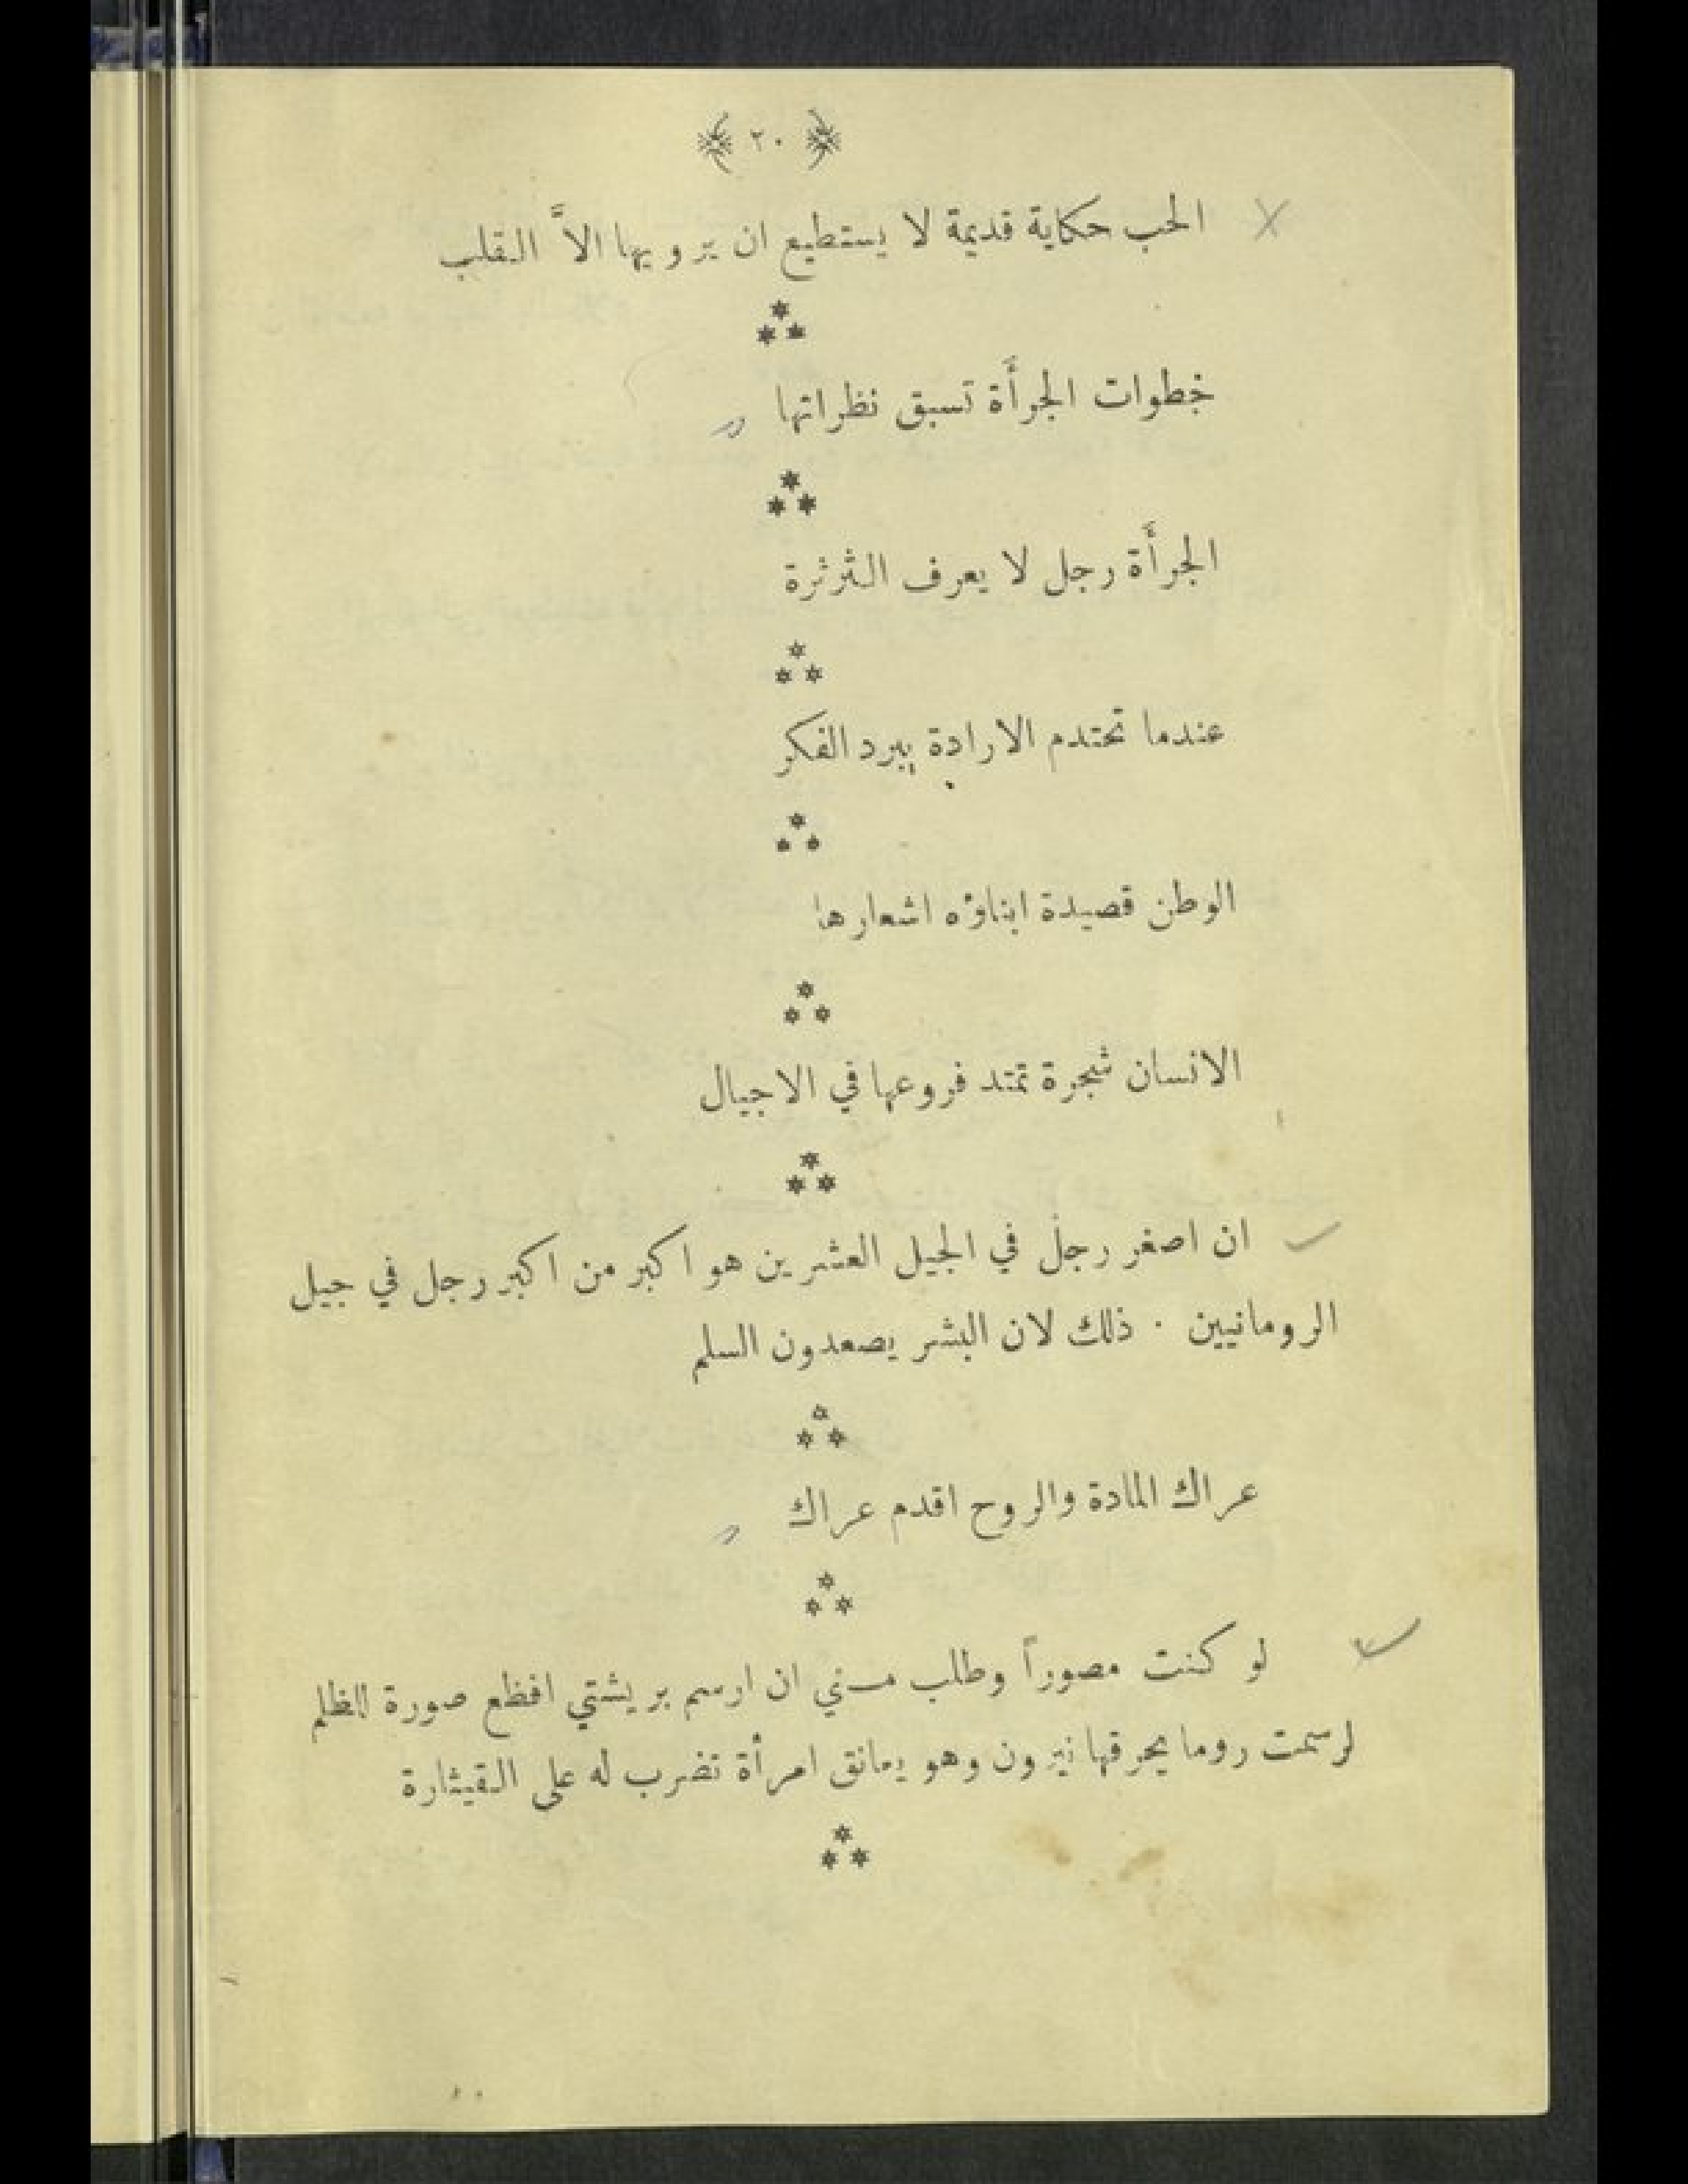 ﴿ ٢٠ ﴾
الحب حكاية قديمة لا يستطيع ان يرويها الاَّ القلب
خطوات الجرأَة تسبق نظراتها
الجرأَة رجل لا يعرف الثرثرة
عندما تحتدم الارادة يبرد الفكر
الوطن قصيدة ابناؤه اشعارها
الانسان شجرة تمتد فروعها في الاجيال
ان اصغر رجل في الجيل العشرين هو اكبر من اكبر رجل في جيل
الرومانيين . ذلك لان البشر يصعدون السلم
عراك المادة والروح اقدم عراك
لو كنت مصوراً وطلب مني ان ارسم بريشتي افظع صورة للظلم
لرسمت روما يحرقها نيرون وهو يعانق امرأة تضرب له على القيثارة